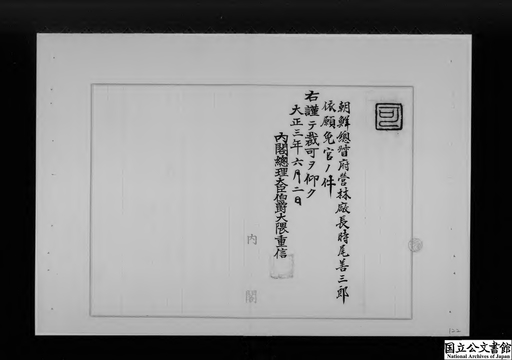 可
朝鮮總督府営林廠長時尾善三郎
依願免官ノ件
右謹テ裁可ヲ仰ク
大正三年六月二日
內閣總理大臣伯爵大隈重信
內閣
国立公文書館
National Archives of Japan